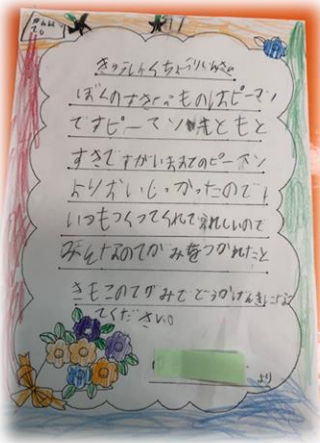 きゅうしょくちょうりいんさんへ
ぼくのすきなものはピーマン
ですピーマンはもともと
すきですがいままでのピーマン
よりおいしかったので!
いつもつくってくれてうれしいので
みんなのてがみをつかれたと
きもこのてがみでどうかげんきになって
てください。
より